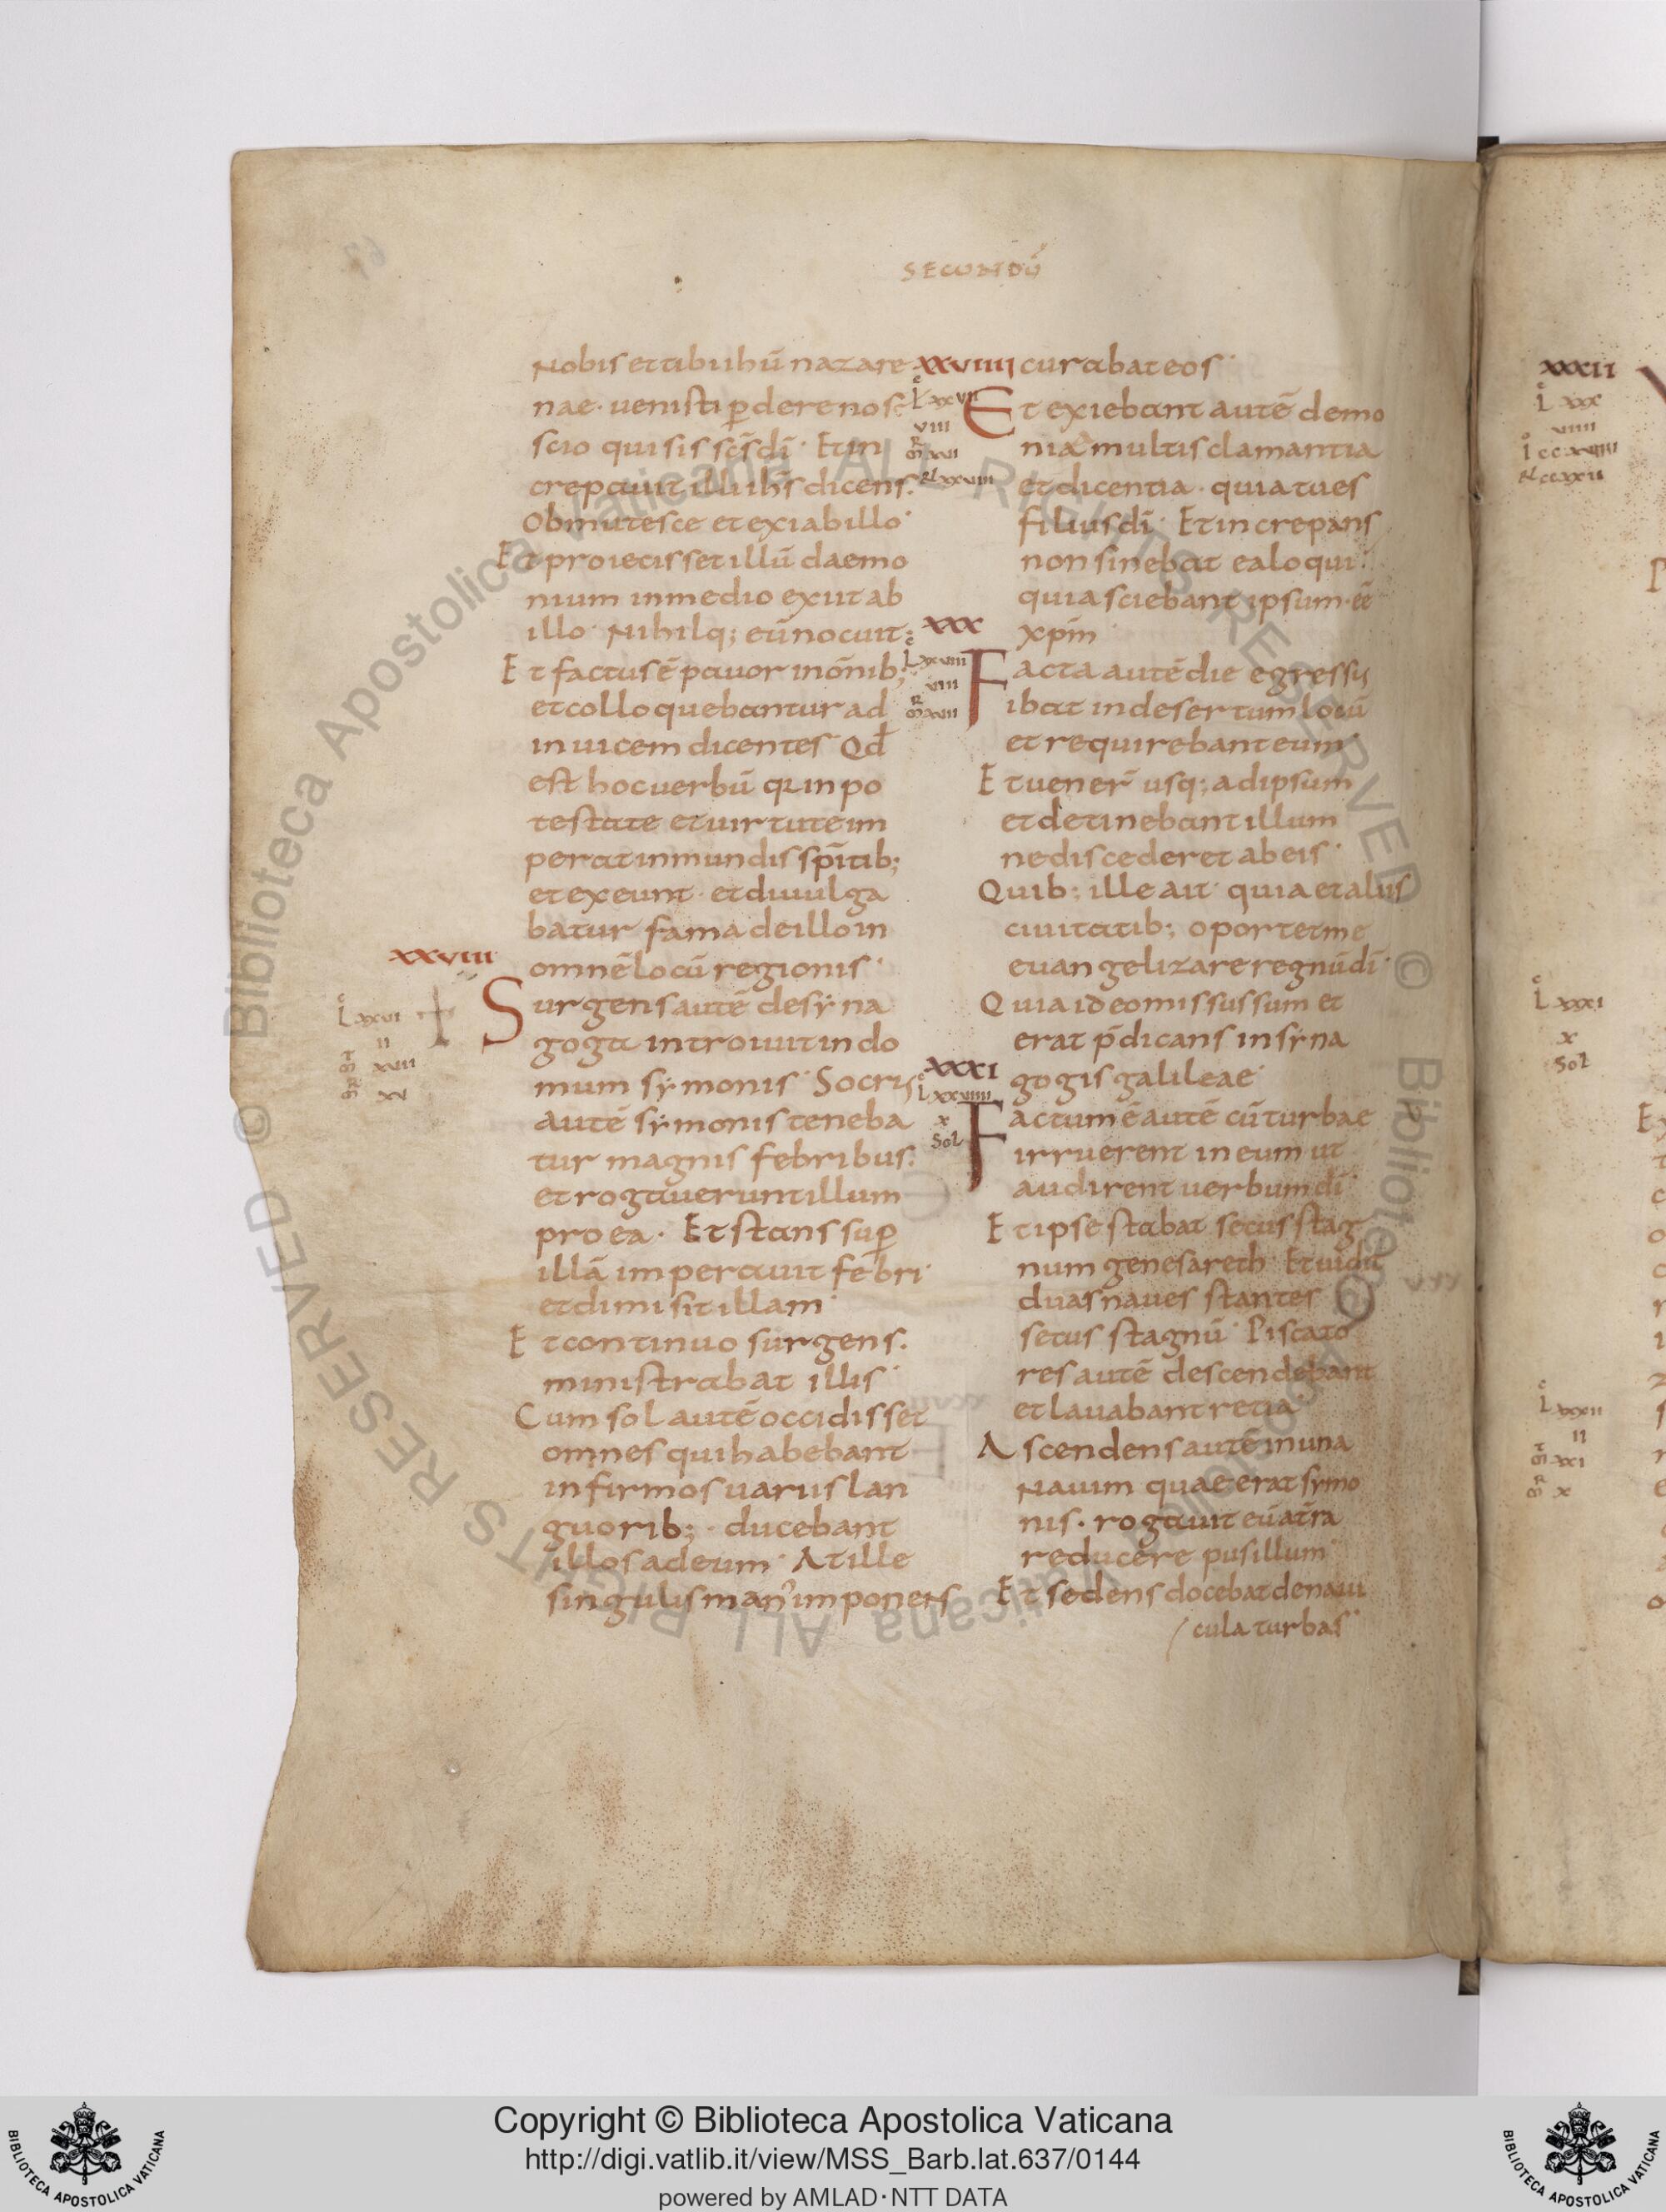 SECUNDŪ
Nobis et tibi ihū nazare
nae · uenisti p̄dere nos ·
scio qui sis scs̄ dī · Et in
crepauit illi ihs̄ dicens ·
Obmutesce et exi ab illo ·
Et proiecisset illū daemo
nium in medio exiit ab
illo · Nihilq; eū nocuit ·
Et factus ē pauor in om̄ib;
et colloquebantur ad
inuicem dicentes · Qd̄
est hoc uerbū q in po
testate et uirtute im
perat inmundis sp̄itib;
et exeunt · et diuulga
batur fama de illo in
XXVIII
omnē locū regionis ·
Surgens autē de syna
goga introiuit in do
mum symonis · Socris
autē symonis teneba
tur magnis febribus ·
et rogauerunt illum
pro ea · Et stans sup̄
illā imperauit febri ·
et dimisit illam ·
Et continuo surgens ·
ministrabat illis ·
Cum sol autē occidisset
omnes qui habebant
infirmos uariis lan
guorib; · ducebant
illos ad eum · At ille
singulis man' imponens
L xxvi
II
XIII
XV
XXVIIII
curabat eos ·
L xxvii
VIII
Et exiebant autē demo
nia multis clamantia
et dicentia · quia tu es
filius dī · Et increpans
non sinebat ea loqui ·
quia sciebant ipsum · eē
XXX
xpm̄ ·
L xxviii
VIII
Facta autē die egressus
ibat in desertum locū
et requirebant eum ·
Et uener̄ usq; ad ipsum
et detinebant illum
ne discederet ab eis ·
Quib; ille ait · quia et aliis
ciuitatib; oportet me
euangelizare regnū dī ·
Quia ideo missus sum et
erat p̄dicans in syna
XXXI
gogis galileae ·
L xxviiii
X
Sol
Factum ē autē cū turbae
irruerent in eum ut
audirent uerbum dī ·
Et ipse stabat secus stag
num genesareth · Et uidit
duas naues stantes
secus stagnū · Piscato
res autē descendebant
et lauabant retia ·
Ascendens autē in una
Nauim quae erat symo
nis · rogauit eū a tr̄a
reducere pusillum ·
Et sedens docebat de naui
cula turbas ·
XXXII
L xxx
VIIII
L xxxi
X
Sol
L xxxii
II
X
© Biblioteca Apostolica Vaticana ALL RIGHTS RESERVED © Biblioteca Apostolica Vaticana ALL RIGHTS RESERVED
BIBLIOTECA APOSTOLICA VATICANA
Copyright © Biblioteca Apostolica Vaticana
http://digi.vatlib.it/view/MSS_Barb.lat.637/0144
powered by AMLAD·NTT DATA
BIBLIOTECA APOSTOLICA VATICANA